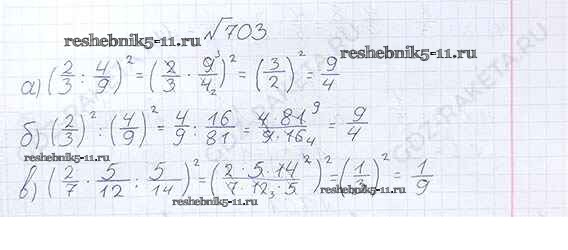 №703
reshebnik5-11.ru
а) (2/3 : 4/9)² = (2/3 · 9³/4₂)² = (3/2)² = 9/4
б) (2/3)² : (4/9)² = 4/9 : 16/81 = 4·81⁹/9·16₄ = 9/4
reshebnik5-11.ru
в) (2/7 · 5/12 : 5/14)² = (2·5·14²/7·12₃·5)² = (1/3)² = 1/9
reshebnik5-11.ru
GDZ-RAKETA.RU